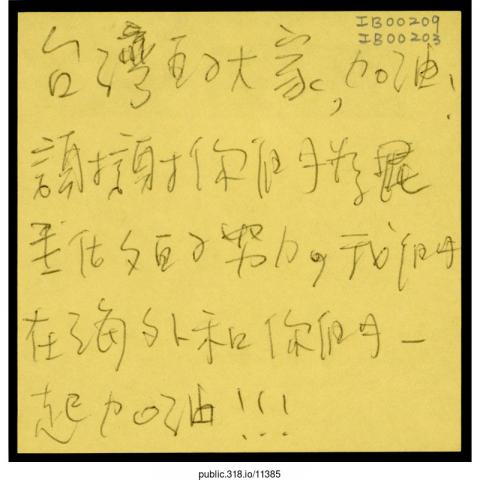 IB00209
IB00203
台灣的大家,加油!
謝謝你們為民
主做的努力。我們
在海外和你們一
起加油!!!
public.318.io/11385